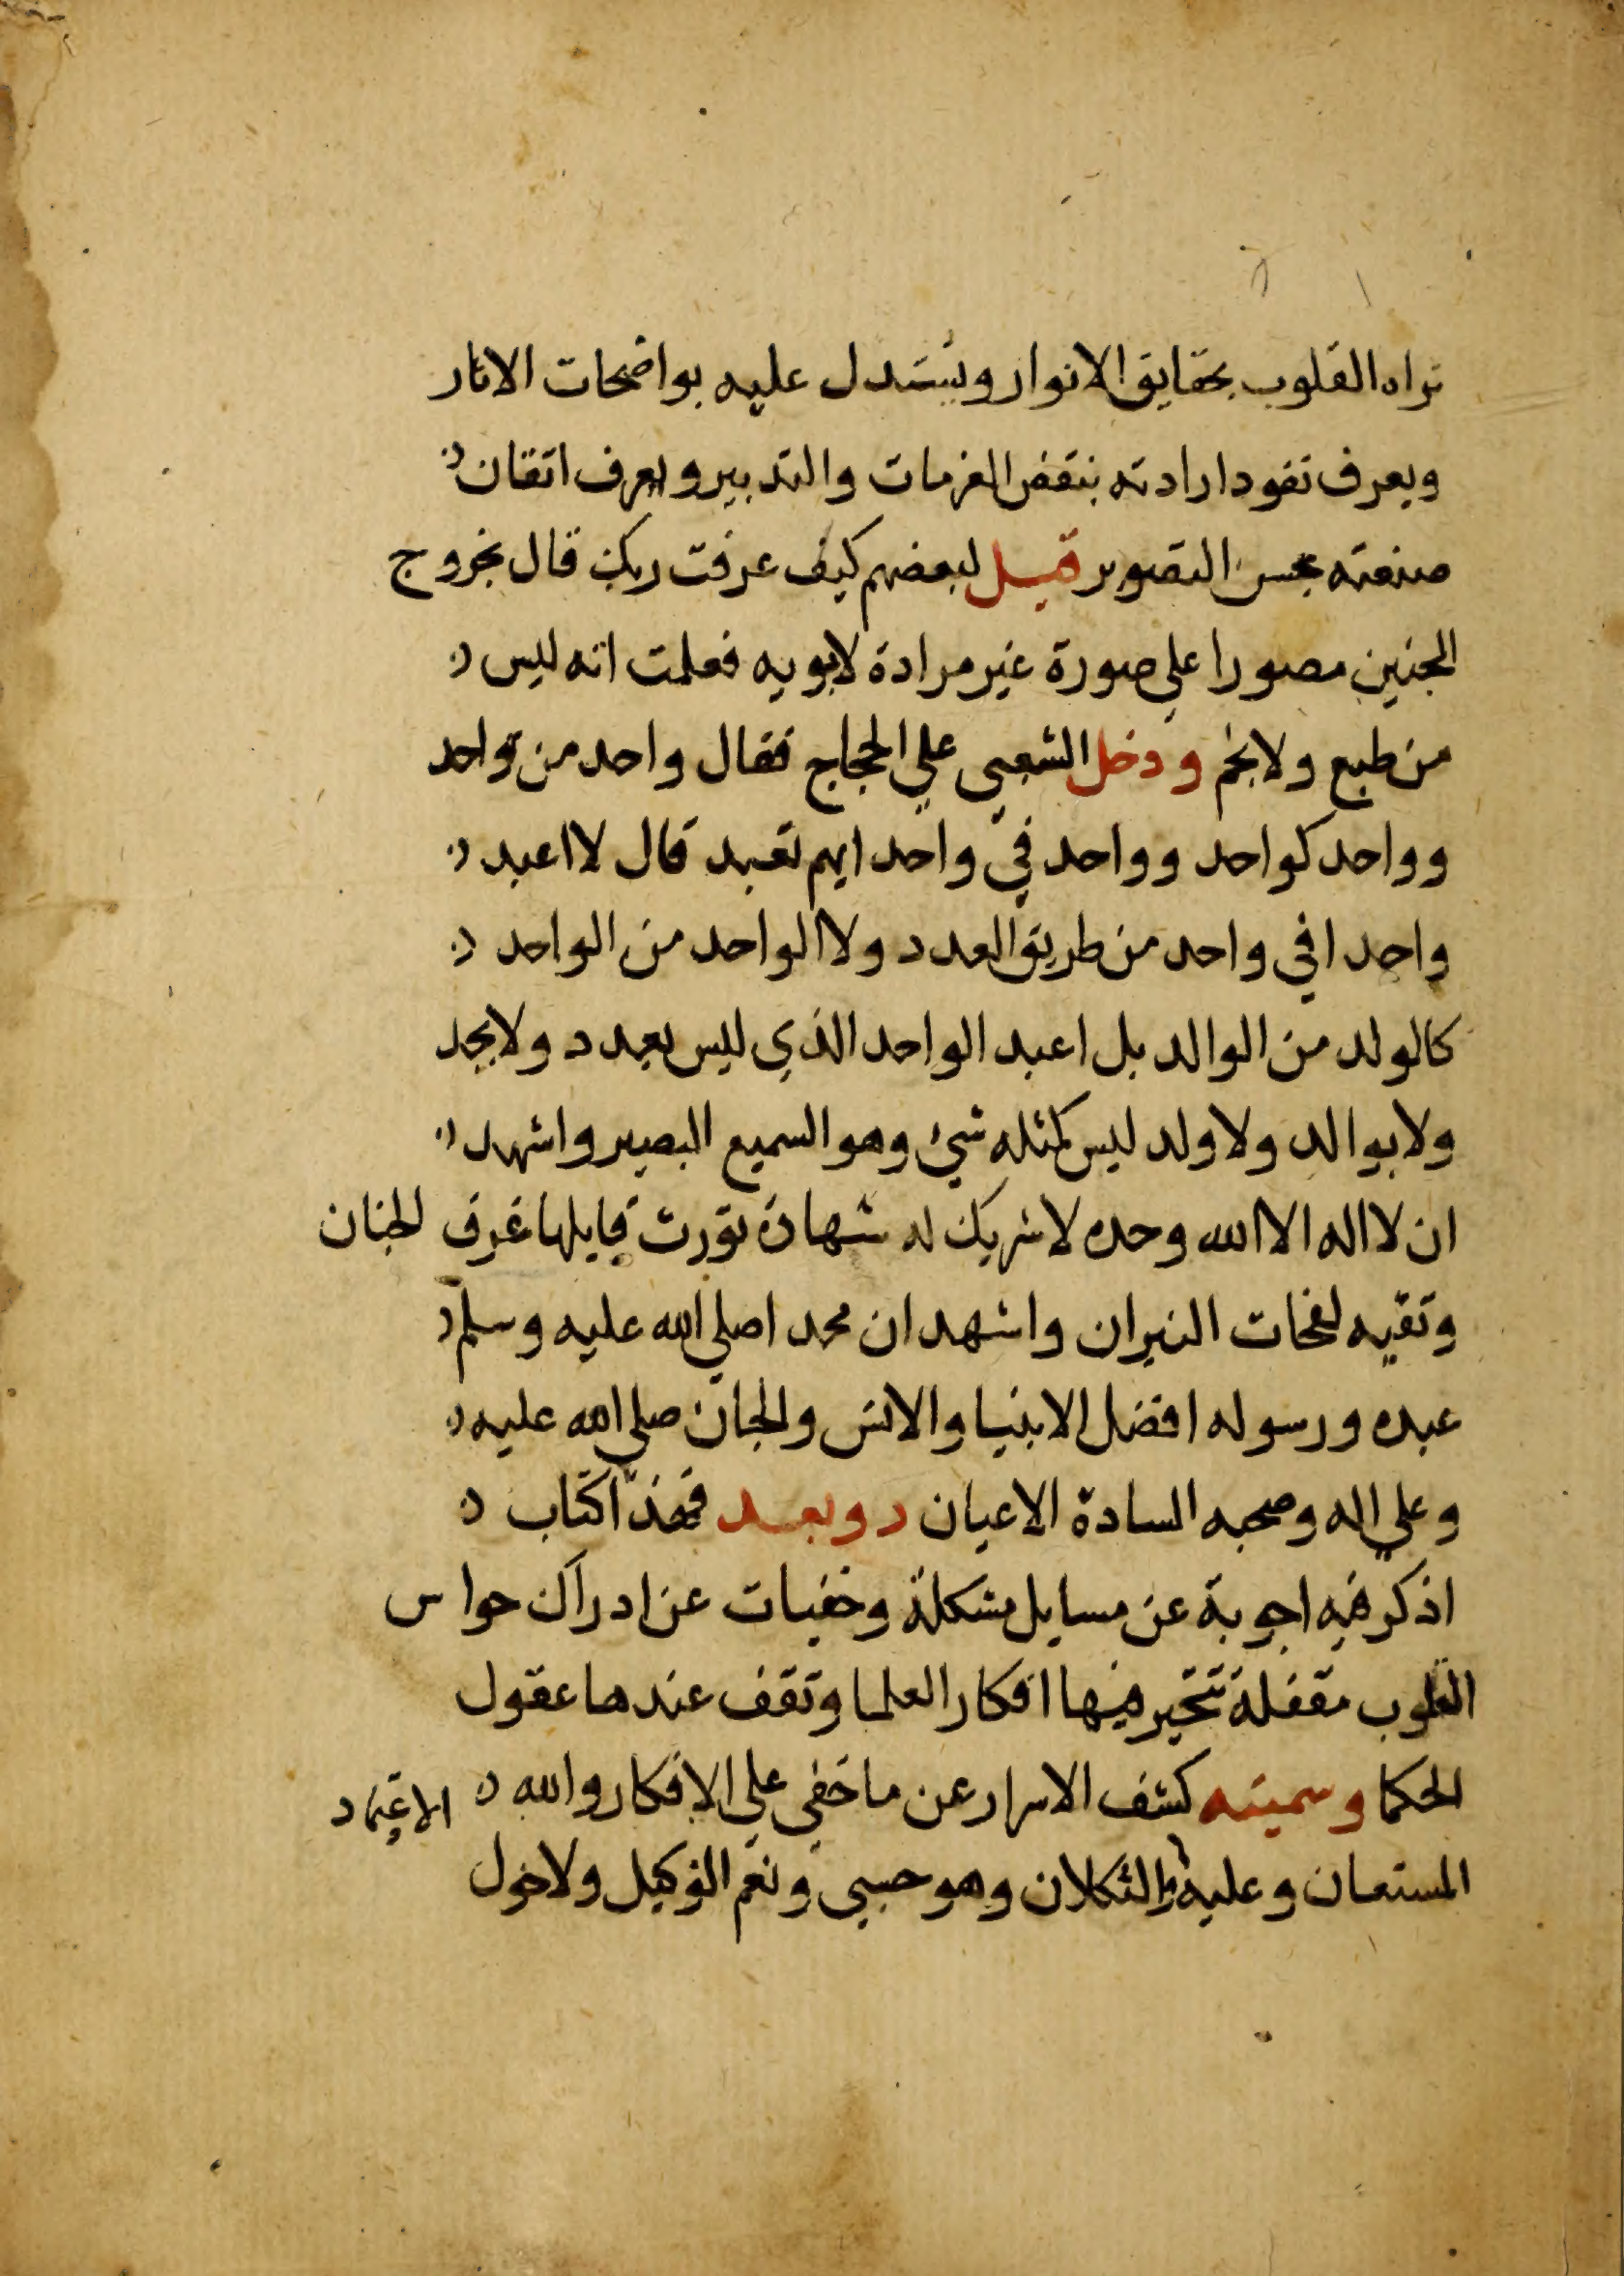 تراه القلوب بحقايق الانوار ويستدل عليه بواضحات الاثار
ويعرف نفود ارادته بنقض العزمات والتدبير ويعرف اتقان
صنعته بحسن التصوير قيل لبعضهم كيف عرفت ربك قال بخروج
الجنين مصورا علي صورة غير مرادة لابويه فعلمت انه ليس
من طبع ولا نجم ودخل الشعبي علي الحجاج فقال واحد من واحد
وواحد كواحد وواحد في واحد ايهم تعبد قال لا اعبد
واحدا في واحد من طريق العدد ولا الواحد من الواحد
كالولد من الوالد بل اعبد الواحد الذي ليس بعدد ولا بحد
ولا بوالد ولا ولد ليس كمثله شئ وهو السميع البصير واشهد
ان لا اله الا الله وحده لا شريك له شهادة تورث قايلها غرف الجنان
وتقيه لفحات النيران واشهد ان محمدا صلي الله عليه وسلم
عبده ورسوله افضل الانبيا والانس والجان صلي الله عليه
وعلي اله وصحبه السادة الاعيان وبعد فهذا كتاب
اذكر فيه اجوبة عن مسايل مشكلة وخفيات عن ادراك حواس
القلوب مقفلة تتحير فيها افكار العلما وتقف عندها عقول
الحكما وسميته كشف الاسرار عن ما خفي علي الافكار والله
المستعان وعليه الاعتماد والتكلان وهو حسبي ونعم الوكيل ولا حول